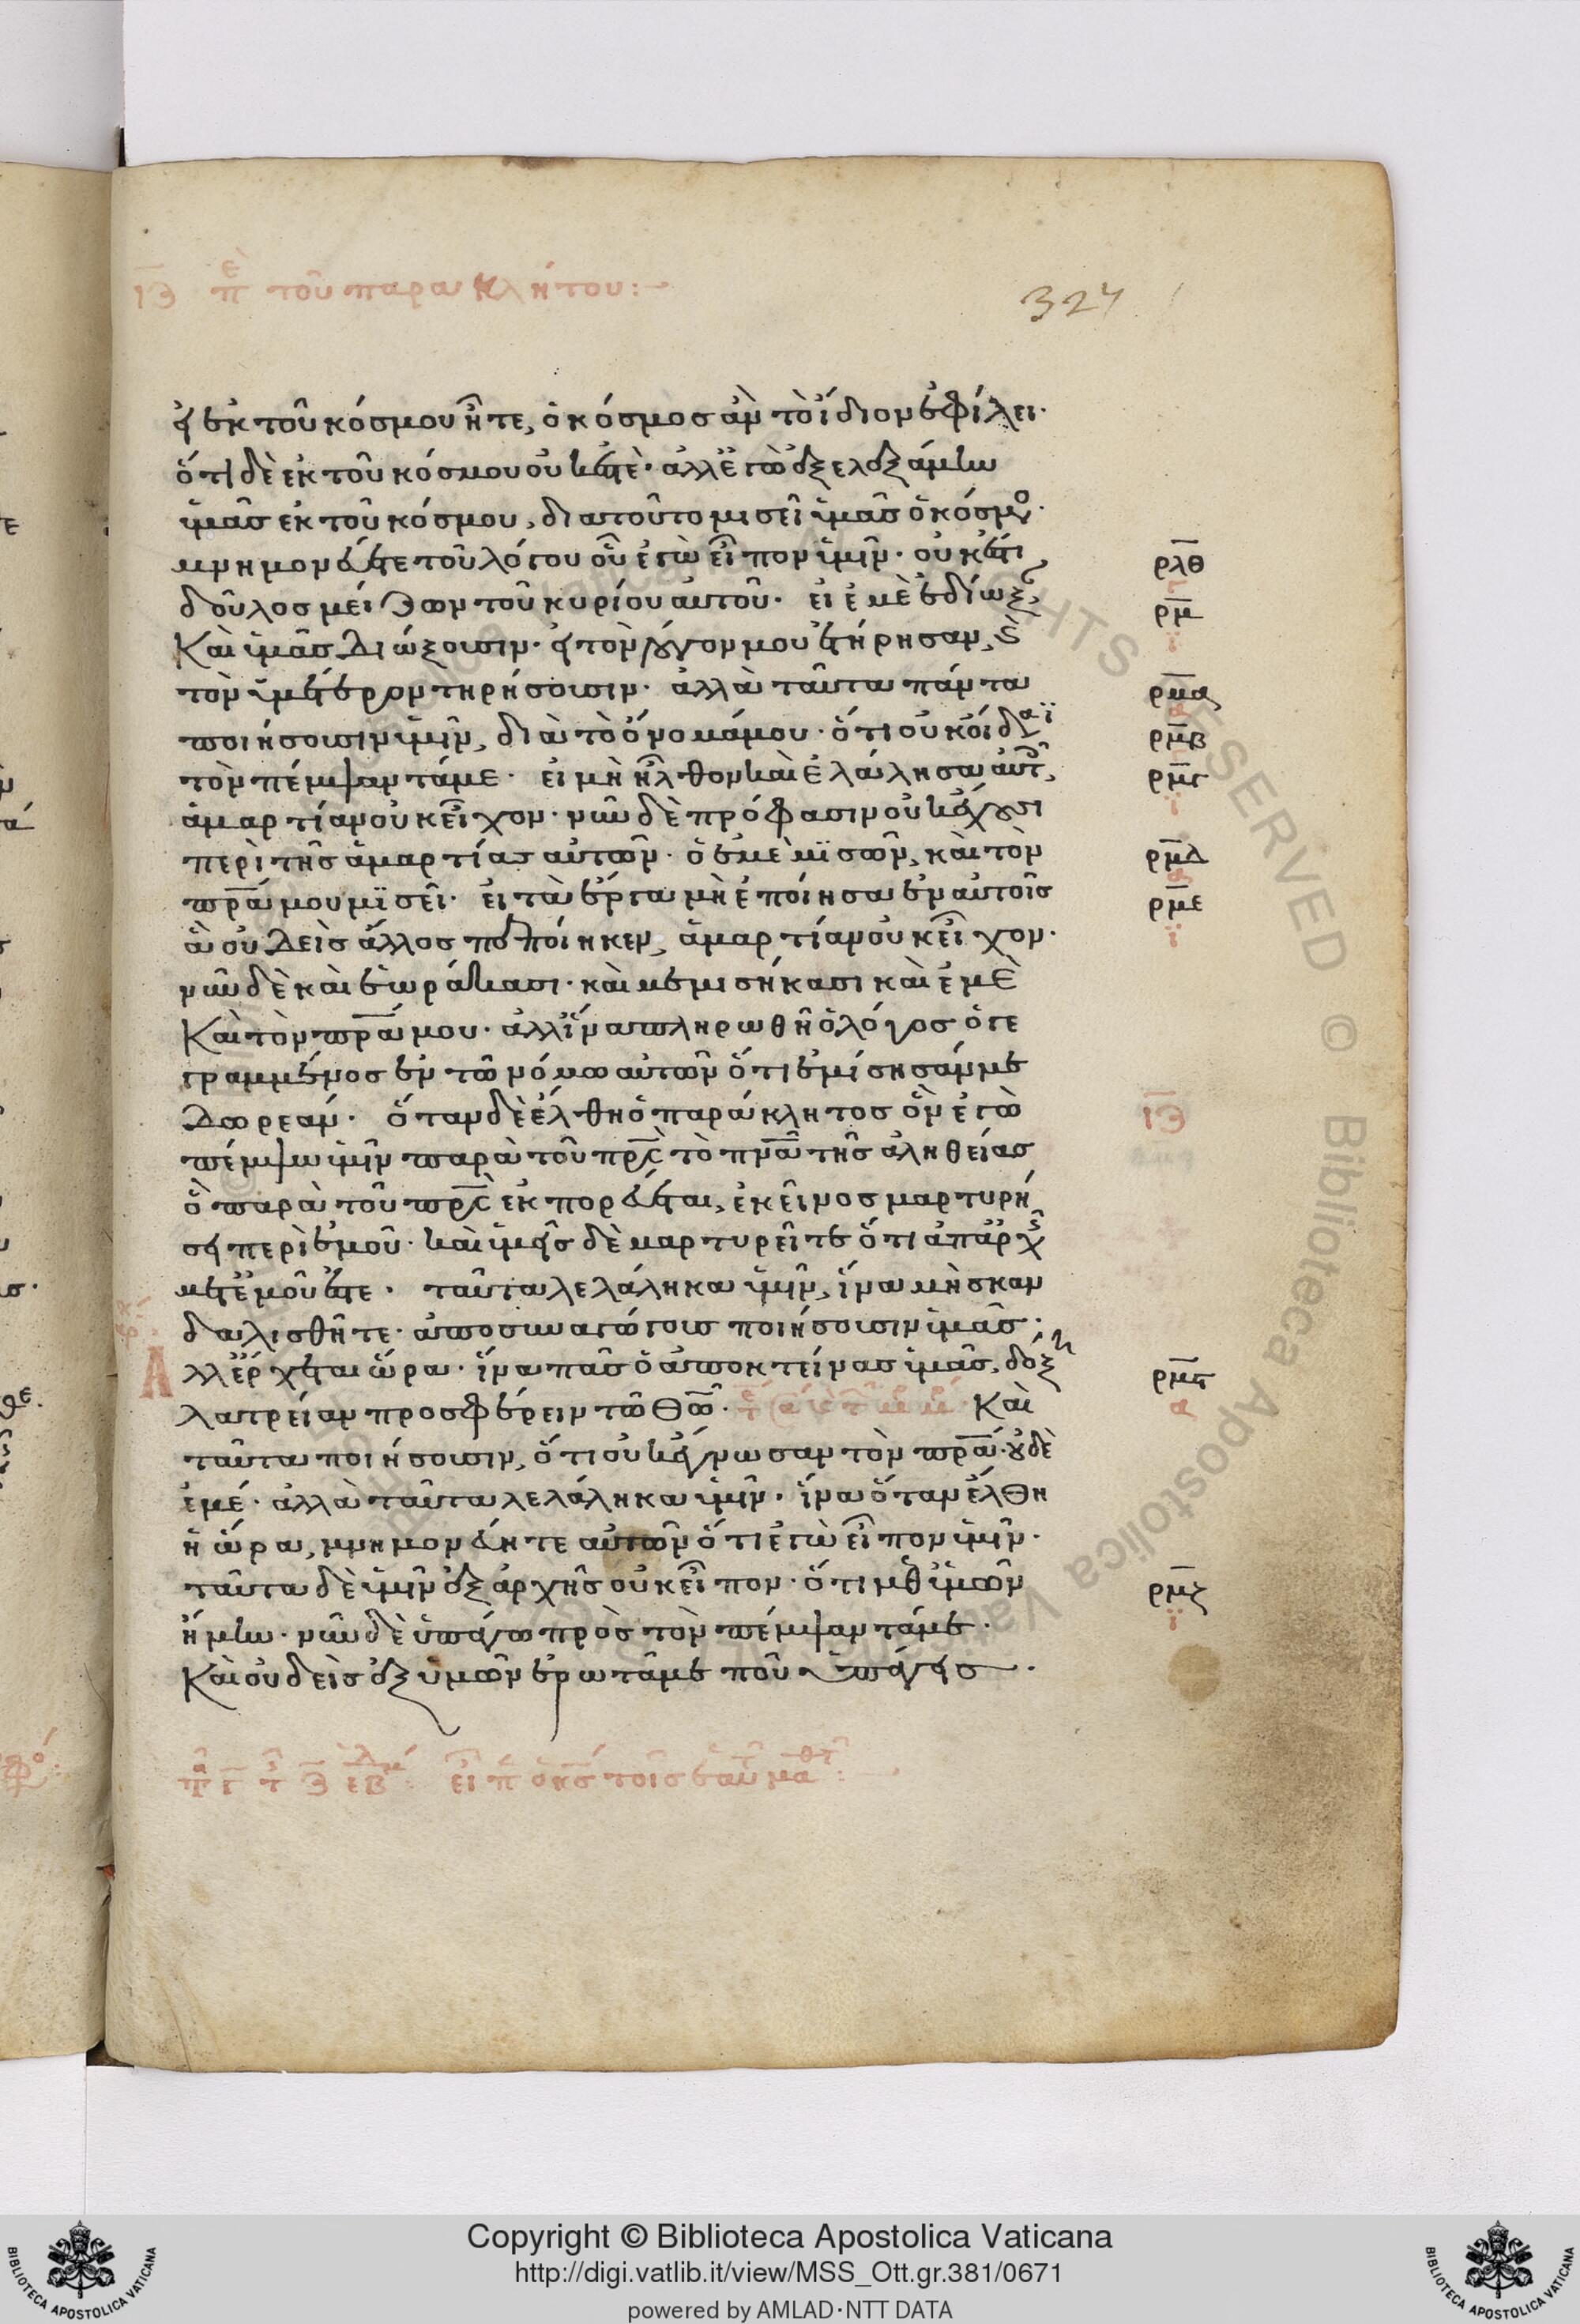 ιϛ πε του παρακλήτου:–
324
εἰ ἐκ τοῦ κόσμου ἦτε, ὁ κόσμος ἂν τὸ ἴδιον ἐφίλει·
ὅτι δὲ ἐκ τοῦ κόσμου οὐκ ἐστὲ· ἀλλ' ἐγὼ ἐξελεξάμην
ὑμᾶς ἐκ τοῦ κόσμου, διατοῦτο μισεῖ ὑμᾶς ὁ κόσμος·
μνημονεύετε τοῦ λόγου οὗ ἐγὼ εἶπον ὑμῖν· οὐκ ἔστι
ρλθ
δοῦλος μείζων τοῦ κυρίου αὐτοῦ· εἰ ἐμὲ ἐδίωξ
ρμ
Καὶ ὑμᾶς διώξουσιν· εἰ τὸν λόγον μου ἐτήρησαν, καὶ
τὸν ὑμέτερον τηρήσουσιν· ἀλλὰ ταῦτα πάντα
ρμα
ποιήσουσιν ὑμῖν, διὰ τὸ ὄνομά μου· ὅτι οὐκ οἴδασι
ρμβ
τὸν πέμψαντά με· εἰ μὴ ἦλθον καὶ ἐλάλησα αὐτοῖς,
ρμγ
ἁμαρτίαν οὐκ εἶχον· νῦν δὲ πρόφασιν οὐκ ἔχουσι
περὶ τῆς ἁμαρτίας αὐτῶν· ὁ ἐμὲ μισῶν, καὶ τὸν
ρμδ
πρα μου μισεῖ· εἰ τὰ ἔργα μὴ ἐποίησα ἐν αὐτοῖς
ρμε
ἃ οὐδεὶς ἄλλος πεποίηκεν, ἁμαρτίαν οὐκ εἶχον·
νῦν δὲ καὶ ἑωράκασι· καὶ μεμισήκασι καὶ ἐμὲ
Καὶ τὸν πρα μου· ἀλλ' ἵνα πληρωθῆ ὁ λόγος ὁ γε
γραμμένος ἐν τῶ νόμω αὐτῶν ὅτι ἐμίσησάν με
δωρεάν· ὅταν δὲ ἔλθη ὁ παράκλητος ὃν ἐγὼ
ιϛ
πέμψω ὑμῖν παρὰ τοῦ πρς τὸ πνα τῆς ἀληθείας
ὃ παρὰ τοῦ πρς ἐκπορεύεται, ἐκεῖνος μαρτυρή
σει περὶ ἐμοῦ· καὶ ὑμεῖς δὲ μαρτυρεῖτε ὅτι ἀπ' ἀρχῆς
μετ' ἐμοῦ ἐστε· ταῦτα λελάληκα ὑμῖν, ἵνα μὴ σκαν
δαλισθῆτε· ἀποσυναγώγους ποιήσουσιν ὑμᾶς·
Ἀλλ' ἔρχεται ὥρα· ἵνα πᾶς ὁ ἀποκτείνας ὑμᾶς, δόξη
ρμϛ
λατρείαν προσφέρειν τῶ Θω· Καὶ
ταῦτα ποιήσουσιν, ὅτι οὐκ ἔγνωσαν τὸν πρα· οὐδὲ
ἐμέ· ἀλλὰ ταῦτα λελάληκα ὑμῖν· ἵνα ὅταν ἔλθη
ἡ ὥρα, μνημονεύητε αὐτῶν ὅτι ἐγὼ εἶπον ὑμῖν·
ταῦτα δὲ ὑμῖν ἐξ ἀρχῆς οὐκ εἶπον· ὅτι μεθ' ὑμῶν
ρμζ
ἤμην· νῦν δὲ ὑπάγω πρὸς τὸν πέμψαντά με·
Καὶ οὐδεὶς ἐξ ὑμῶν ἐρωτᾶ με ποῦ ὑπάγεις·
Copyright © Biblioteca Apostolica Vaticana
http://digi.vatlib.it/view/MSS_Ott.gr.381/0671
powered by AMLAD·NTT DATA